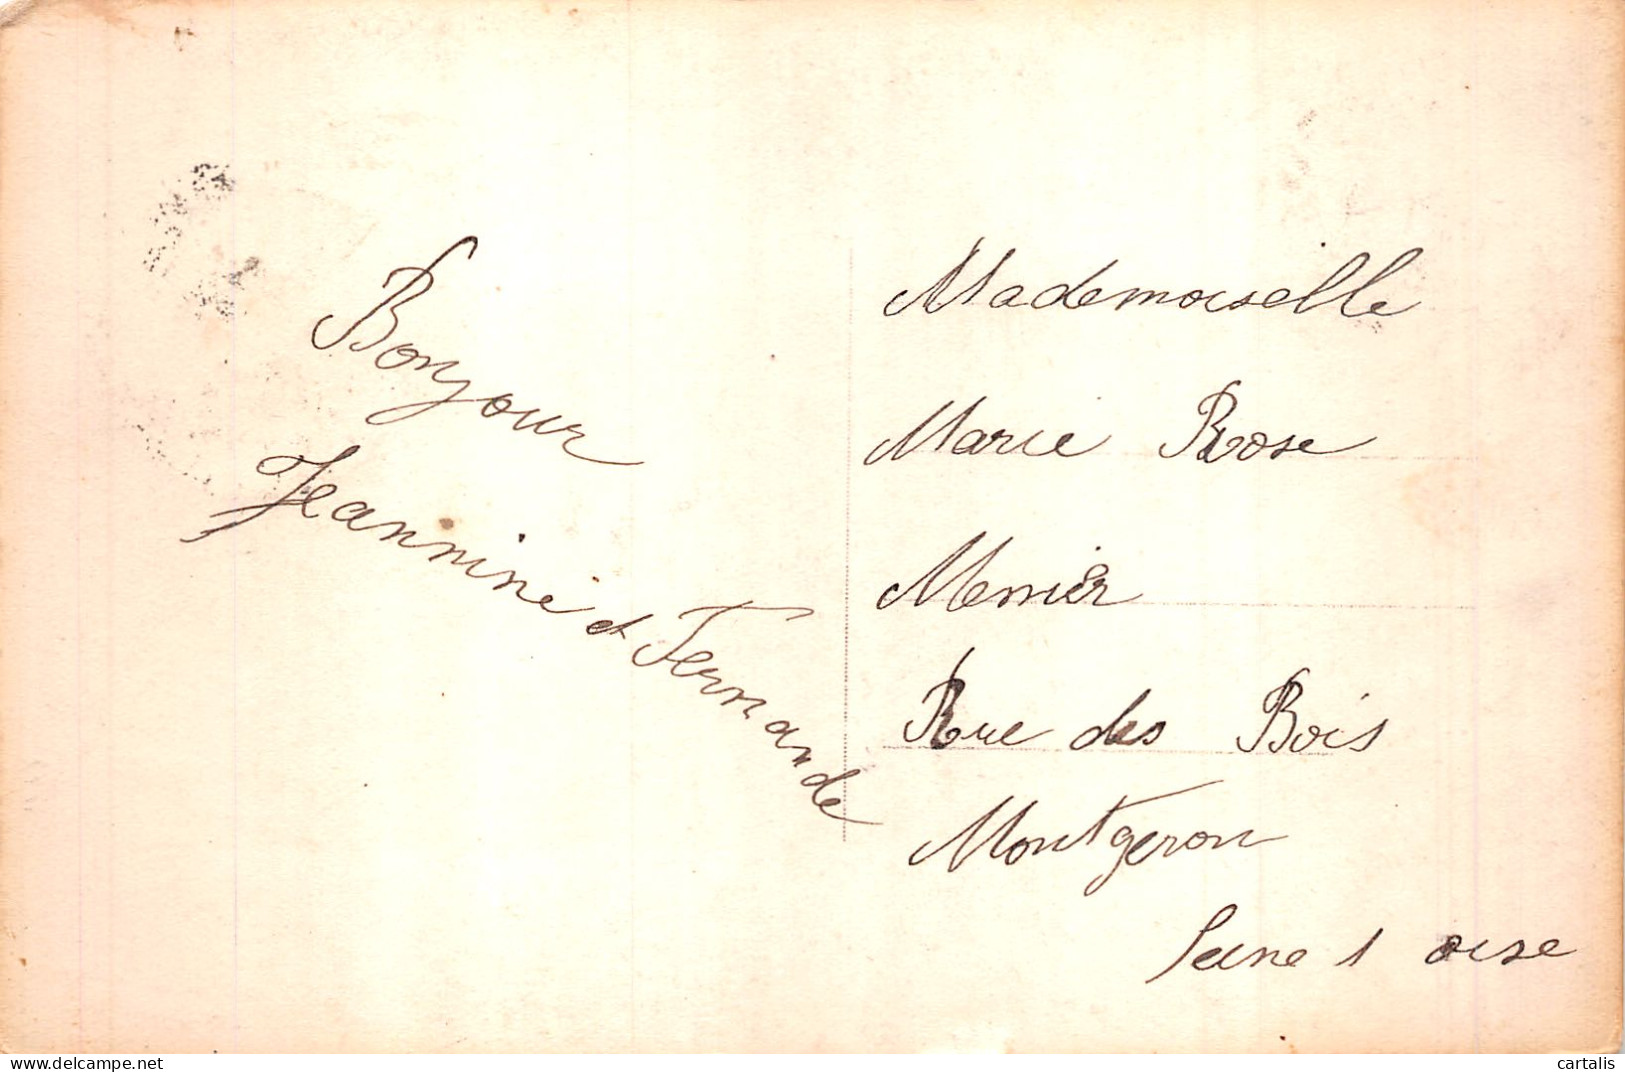 Bonjour
Jeannine et Fernande
Mademoiselle
Marie Rose
Menier
Rue des Bois
Montgeron
Seine s oise
www.delcampe.net
cartalis